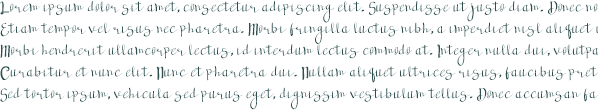 Lorem ipsum dolor sit amet, consectetur adipiscing elit. Suspendisse ut justo diam. Donec no
Etiam tempor vel risus nec pharetra. Morbi fringilla luctus nibh, a imperdiet nisl aliquet i
Morbi hendrerit ullamcorper lectus, id interdum lectus commodo at. Integer nulla dui, volutpa
Curabitur et nunc elit. Nunc et pharetra dui. Nullam aliquet ultrices risus, faucibus pret
Sed tortor ipsum, vehicula sed purus eget, dignissim vestibulum tellus. Donec accumsan fa